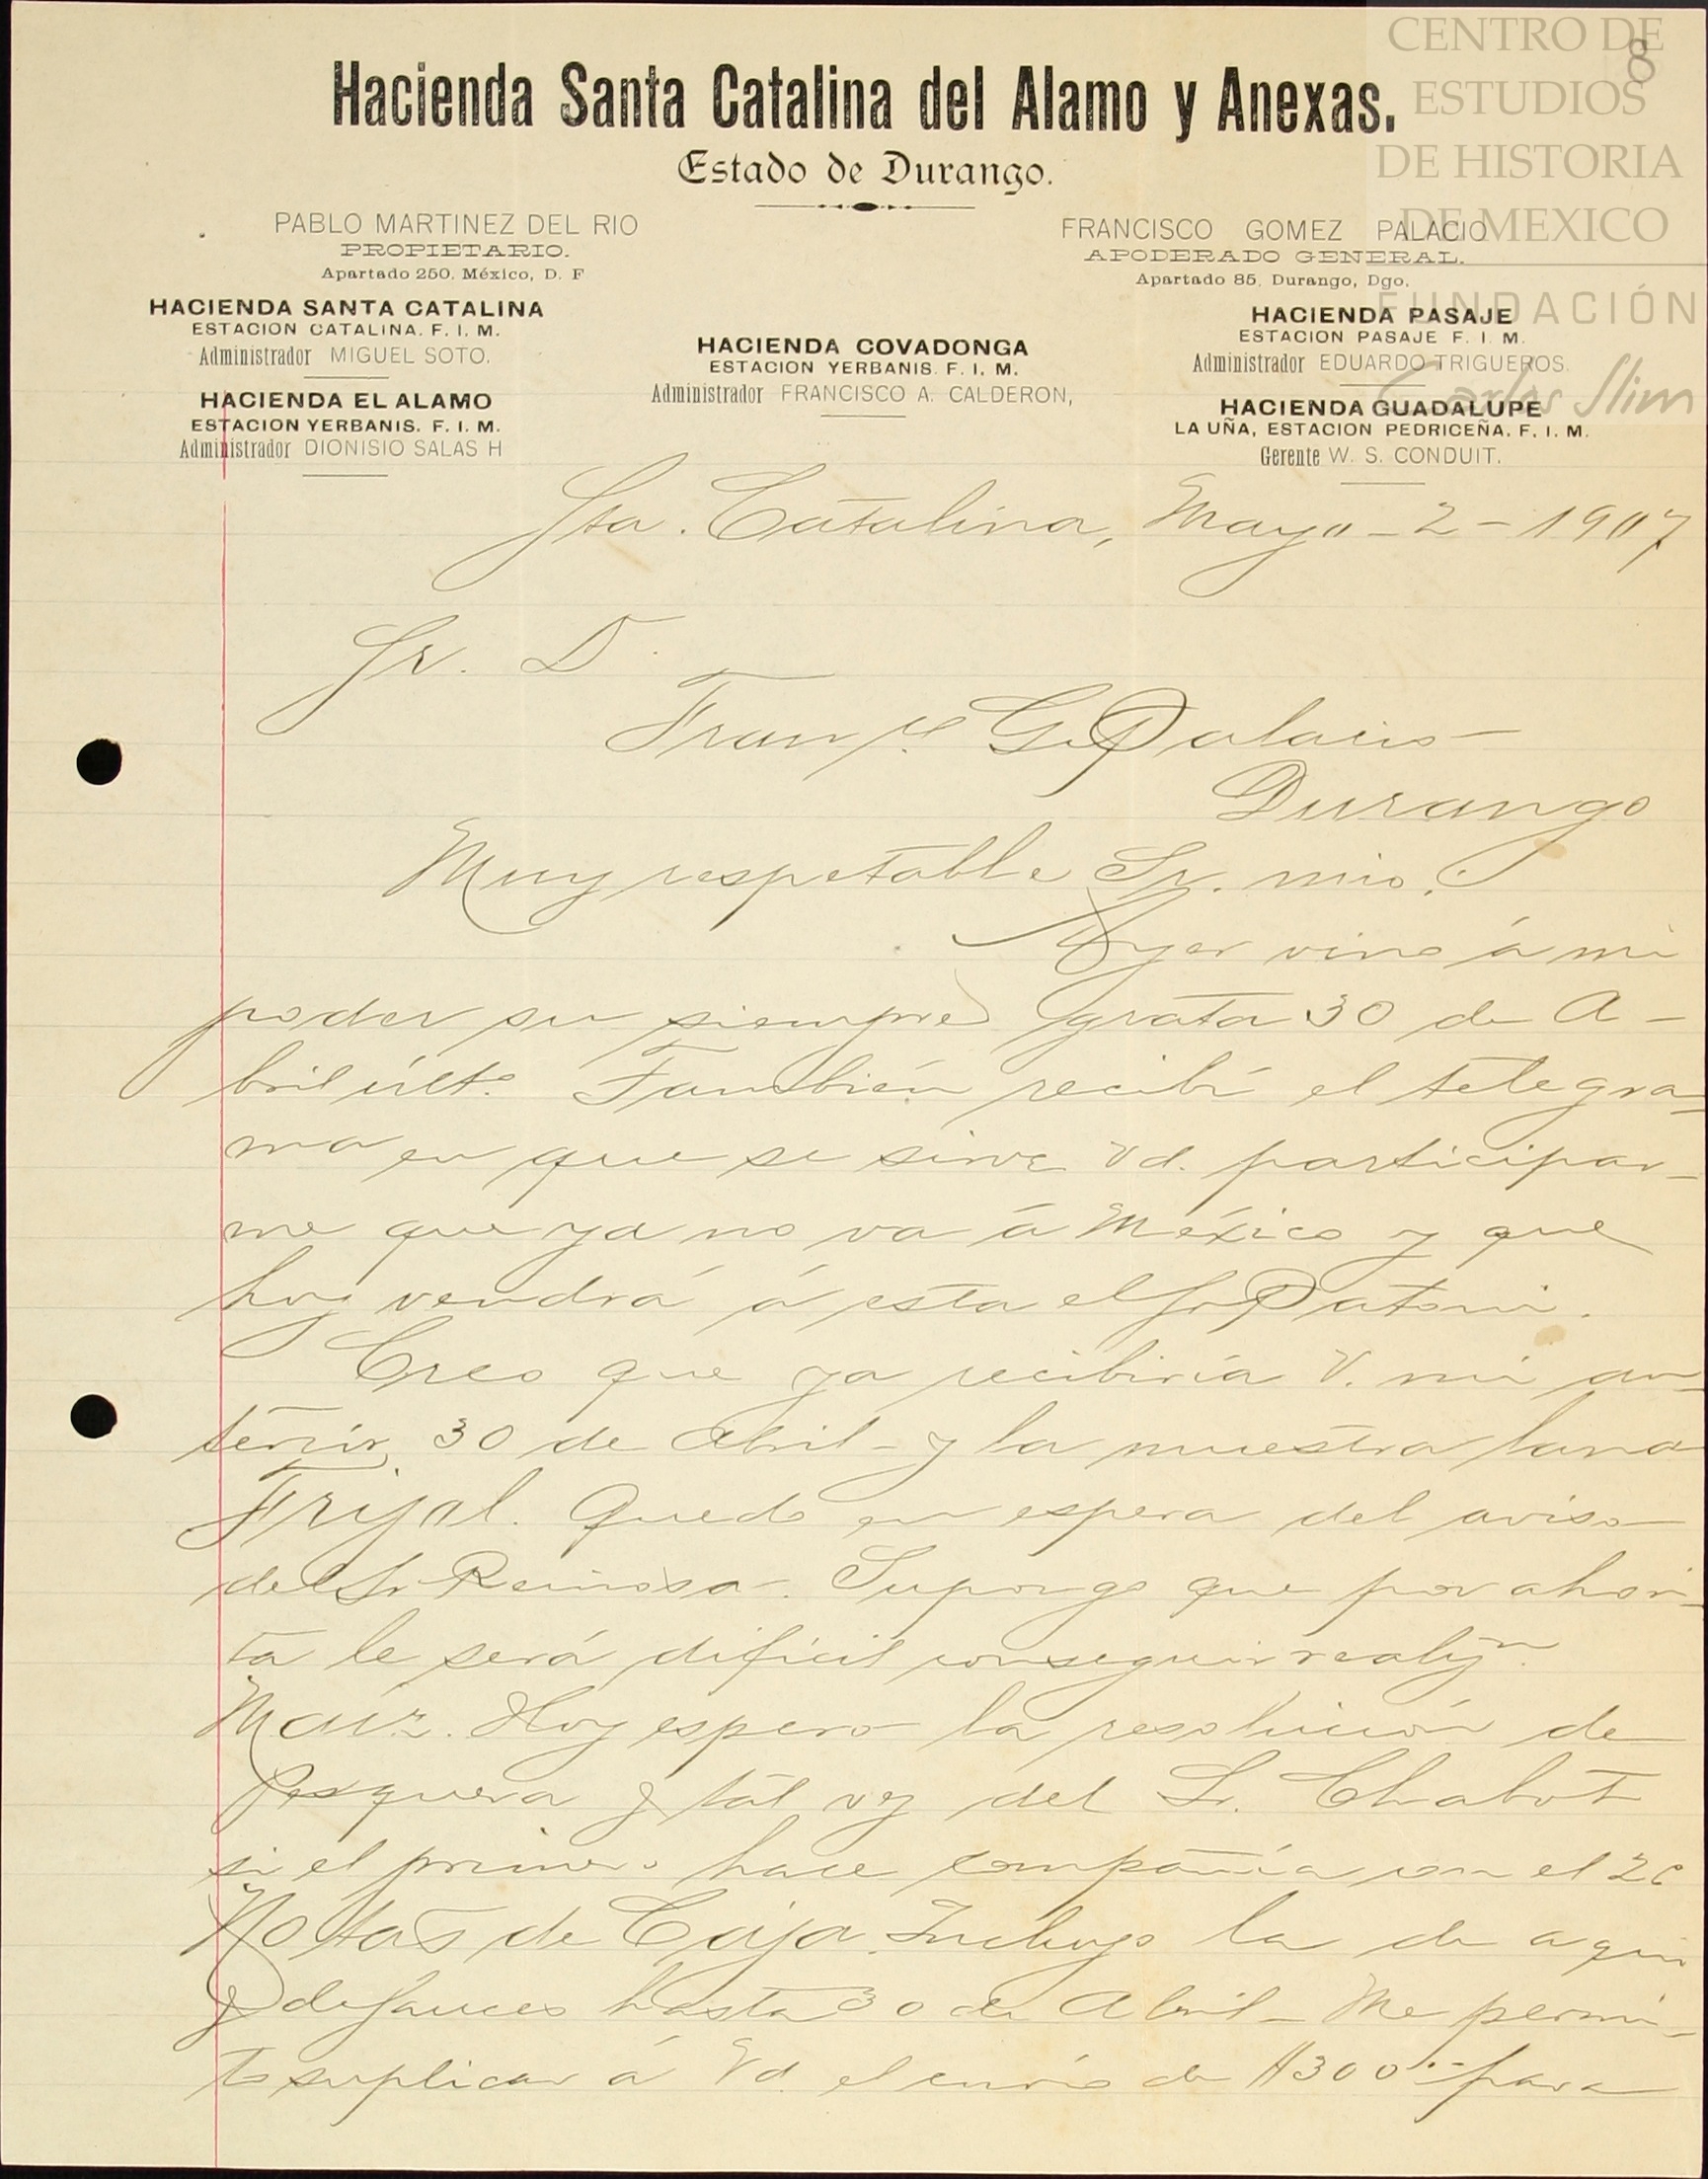 CENTRO DE
ESTUDIOS
DE HISTORIA
DE MEXICO
FUNDACIÓN
Carlos Slim
8
Hacienda Santa Catalina del Alamo y Anexas.
Estado de Durango.
PABLO MARTINEZ DEL RIO
PROPIETARIO.
Apartado 250, México, D. F
FRANCISCO GOMEZ PALACIO
APODERADO GENERAL.
Apartado 85, Durango, Dgo.
HACIENDA SANTA CATALINA
ESTACION CATALINA. F. I. M.
Administrador MIGUEL SOTO.
HACIENDA EL ALAMO
ESTACION YERBANIS. F. I. M.
Administrador DIONISIO SALAS H
HACIENDA COVADONGA
ESTACION YERBANIS. F. I. M.
Administrador FRANCISCO A. CALDERON,
HACIENDA PASAJE
ESTACION PASAJE F. I. M.
Administrador EDUARDO TRIGUEROS.
HACIENDA GUADALUPE
LA UÑA, ESTACION PEDRICEÑA. F. I. M.
Gerente W. S. CONDUIT.
Sta. Catalina, Mayo - 2 - 1907
Sr. D.
Franco G. Palacio -
Durango
Muy respetable Sr. mio:
Ayer vino á mi
poder su siempre grata 30 de A-
bril últo. También recibí el telegra-
ma en que se sirve Vd. participar-
me que ya no va á México y que
hoy vendrá á esta el Sr Patoni.
Creo que ya recibiría V. mi an-
terior 30 de Abril - y la muestra lana
Frijol. Quedo en espera del aviso
del Sr Reinosa. Supongo que por ahori-
ta le será dificil conseguir realizn.
Maiz. Hoy espero la resolución de
Pesquera y tal vez del Sr. Chabot
si el primero hace compañía con el 2o
Notas de Caja. Incluyo la de aquí
y de Sauces hasta 30 de Abril - Me permi-
to suplicar á Vd. el envío de $300.- para